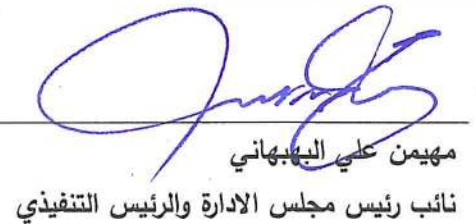 مهيمن علي البهبهاني
نائب رئيس مجلس الادارة والرئيس التنفيذي